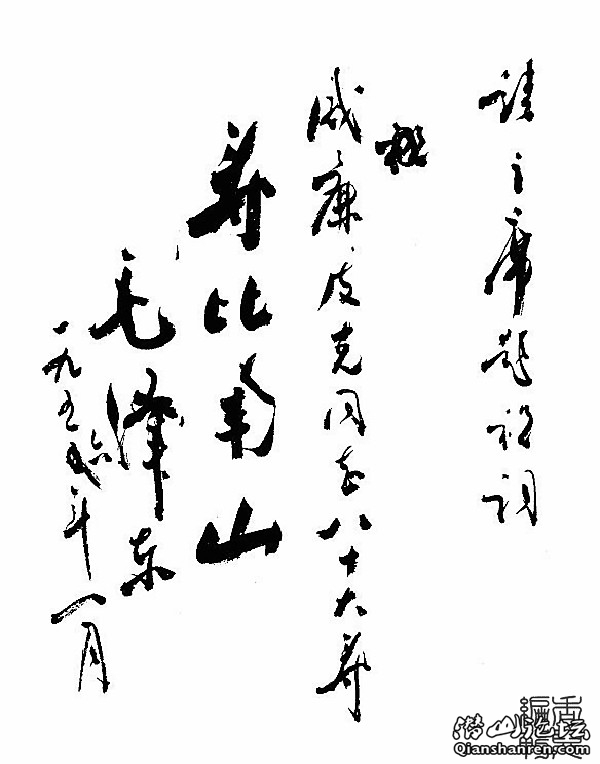 请主席题祝词
祝
威廉皮克同志八十大寿
寿比南山
毛泽东
一九五六年一月
潜山论坛
Qianshanren.com